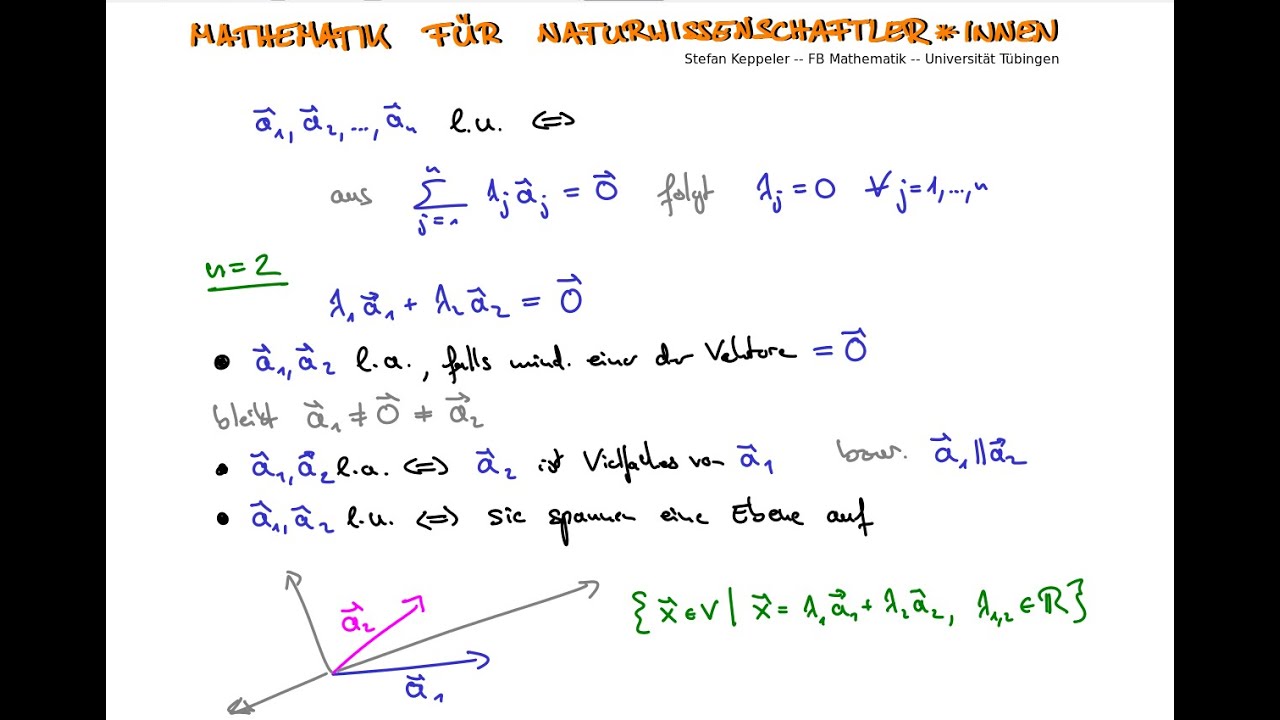 MATHEMATIK FÜR NATURWISSENSCHAFTLER*INNEN
Stefan Keppeler -- FB Mathematik -- Universität Tübingen
a⃗₁, a⃗₂, ..., a⃗ₙ l.u. ⇔
aus ∑ⱼ₌₁ⁿ λⱼ a⃗ⱼ = 0⃗ folgt λⱼ = 0 ∀ j=1,...,n
n=2
λ₁a⃗₁ + λ₂a⃗₂ = 0⃗
• a⃗₁, a⃗₂ l.a., falls mind. einer der Vektoren = 0⃗
bleibt a⃗₁ ≠ 0⃗ ≠ a⃗₂
• a⃗₁, a⃗₂ l.a. ⇔ a⃗₂ ist Vielfaches von a⃗₁ bzw. a⃗₁ ∥ a⃗₂
• a⃗₁, a⃗₂ l.u. ⇔ sie spannen eine Ebene auf
{ x⃗ ∈ V | x⃗ = λ₁a⃗₁ + λ₂a⃗₂, λ₁,₂ ∈ ℝ }
a⃗₂
a⃗₁